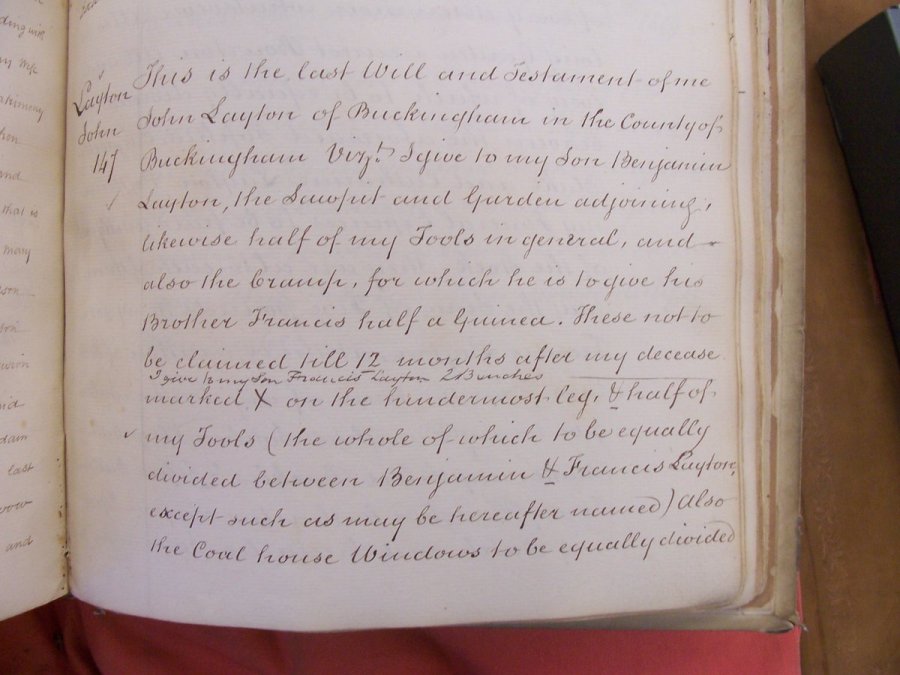 Layton
John
147
This is the last Will and Testament of me
John Layton of Buckingham in the County of
Buckingham Vizt. I give to my Son Benjamin
Layton, the Sawpit and Garden adjoining,
likewise half of my Tools in general, and
also the Cramp, for which he is to give his
Brother Francis half a Guinea. These not to
be claimed till 12 months after my decease
I give to my Son Francis Layton 2 Benches
marked X on the hindermost leg, & half of
my Tools (the whole of which to be equally
divided between Benjamin & Francis Layton,
except such as may be hereafter named) Also
the Coal house Windows to be equally divided
ding with
my Wife
and
that is
may
said
last
and